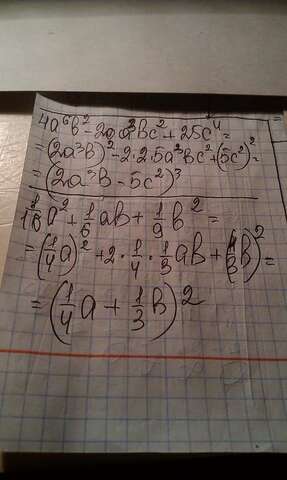 4a⁶b² - 20a³bc² + 25c⁴ =
= (2a³b)² - 2·2·5a³bc² + (5c²)² =
= (2a³b - 5c²)³
1/16 a² + 1/6 ab + 1/9 b² =
= (1/4 a)² + 2 · 1/4 · 1/3 ab + (1/3 b)² =
= (1/4 a + 1/3 b)²